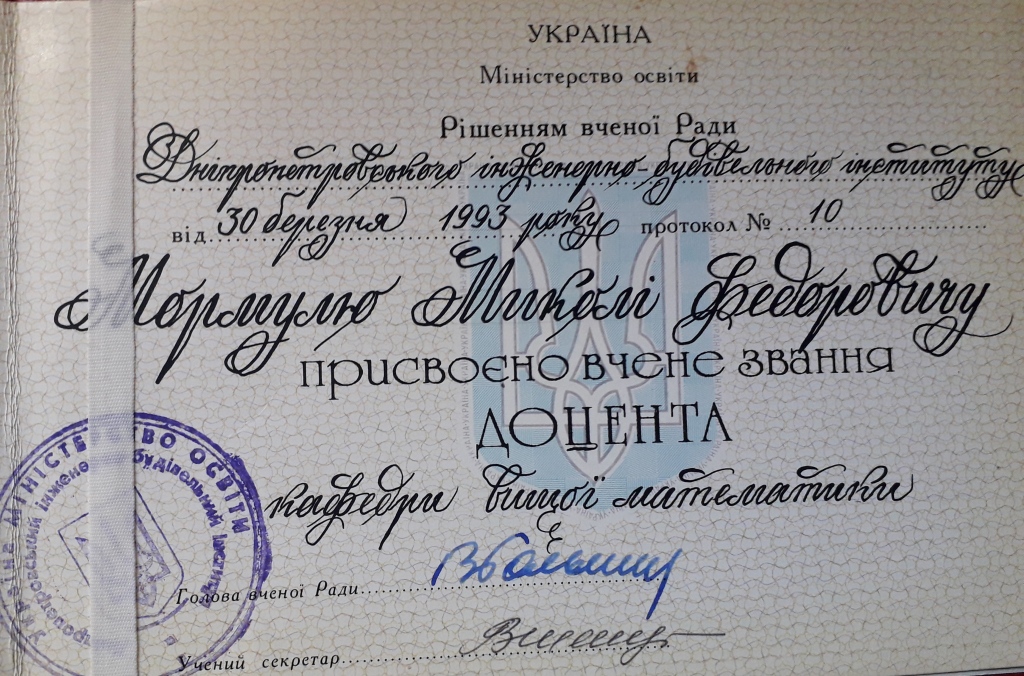 УКРАЇНА
Міністерство освіти
Рішенням вченої Ради
Дніпропетровського інженерно-будівельного інституту
від 30 березня 1993 року протокол № 10
Мормулю Миколі Федоровичу
присвоєно вчене звання
ДОЦЕНТА
кафедри вищої математики
Голова вченої Ради
Учений секретар
Україна МІНІСТЕРСТВО ОСВІТИ
будівельний інститут